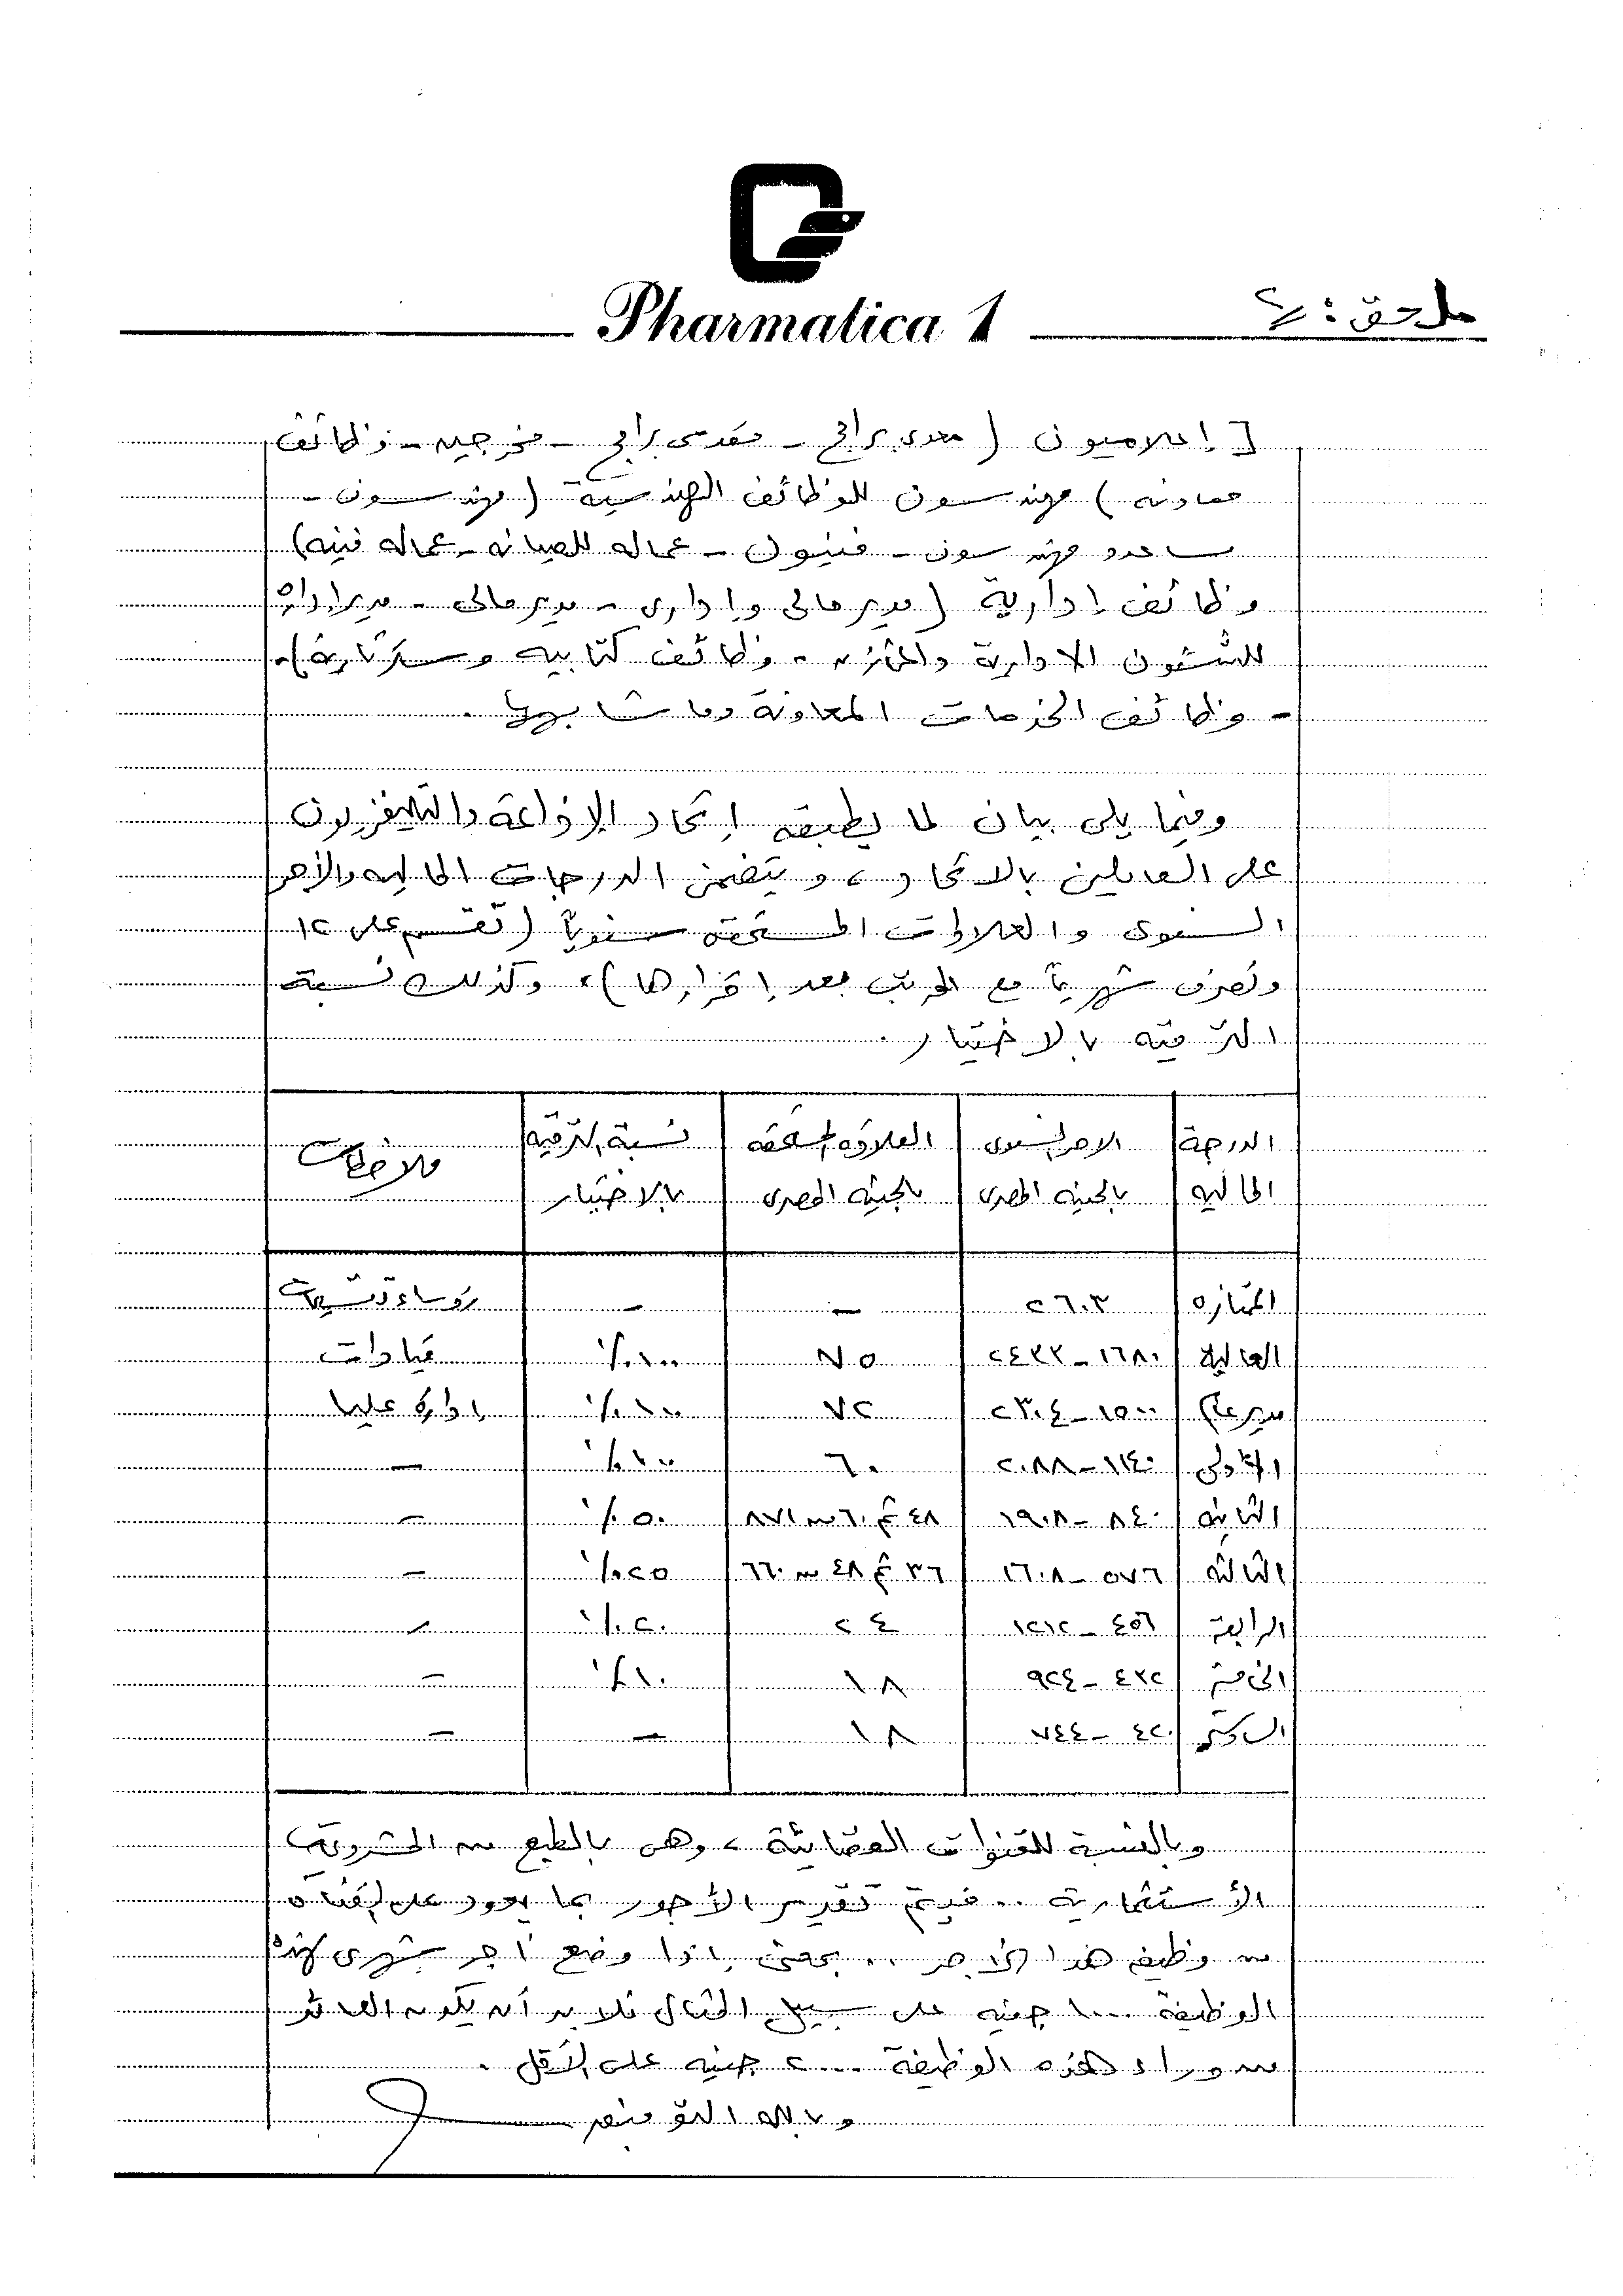 Pharmatica 1
ملحق : ٢
[ إعلاميون ( معدى برامج - مقدمى برامج - مخرجين - وظائف
معاونه ) مهندسون للوظائف الهندسية ( مهندسون -
مساعدو مهندسون - فنيون - عماله للصيانه - عماله فنيه )
وظائف إدارية ( مدير مالى وإدارى - مدير مالى - مدير إداره
للشئون الادارية والمخازن - وظائف كتابيه وسكرتارية ) .
- وظائف الخدمات المعاونة وما شابهها .
وفيما يلى بيان لما يطبقه إتحاد الإذاعة والتليفزيون
على العاملين بالاتحاد ، ويتضمن الدرجات الماليه والأجر
السنوى والعلاوات المستحقه سنوياً ( تقسم على ١٢
وتصرف شهرياً مع المرتب بعد إقرارها ) ، وكذلك نسبة
الترقيه بالاختيار .
الدرجة الماليه | الاجر السنوى بالجنيه المصرى | العلاوه المستحقه بالجنيه المصرى | نسبة الترقيه بالاختيار | ملاحظات
الممتازه | ٢٦٠٣ | - | - | رؤساء
العاليه | ١٦٨٠ - ٢٤٣٢ | ٧٥ | ١٠٠٪ | قيادات
مدير عام | ١٥٠٠ - ٢٣٠٤ | ٧٢ | ١٠٠٪ | إدارة عليا
الأولى | ١١٤٠ - ٢٠٨٨ | ٦٠ | ١٠٠٪ | -
الثانيه | ٨٤٠ - ١٩٠٨ | ٤٨ ثم ٦٠ من ٨٧١ | ٥٠٪ | -
الثالثه | ٥٧٦ - ١٦٠٨ | ٣٦ ثم ٤٨ من ٦٦٠ | ٢٥٪ | -
الرابعة | ٤٥٦ - ١٢١٢ | ٢٤ | ٢٠٪ | -
الخامسة | ٤٣٢ - ٩٢٤ | ١٨ | ١٠٪ | -
السادسة | ٤٢٠ - ٧٤٤ | ١٨ | - | -
وبالنسبة للقنوات الفضائية ، وهى بالطبع من المشروعات
الأستثمارية .. فيتم تقدير الأجور بما يعود على القناه
من وظيفه هذا الأجر .. بمعنى إذا وضع أجر شهرى لهذه
الوظيفة ١٠٠٠ جنيه على سبيل المثال فلابد أن يكون العائد
من وراء هذه الوظيفة ٢٠٠٠ جنيه على الأقل .
وبالله التوفيق